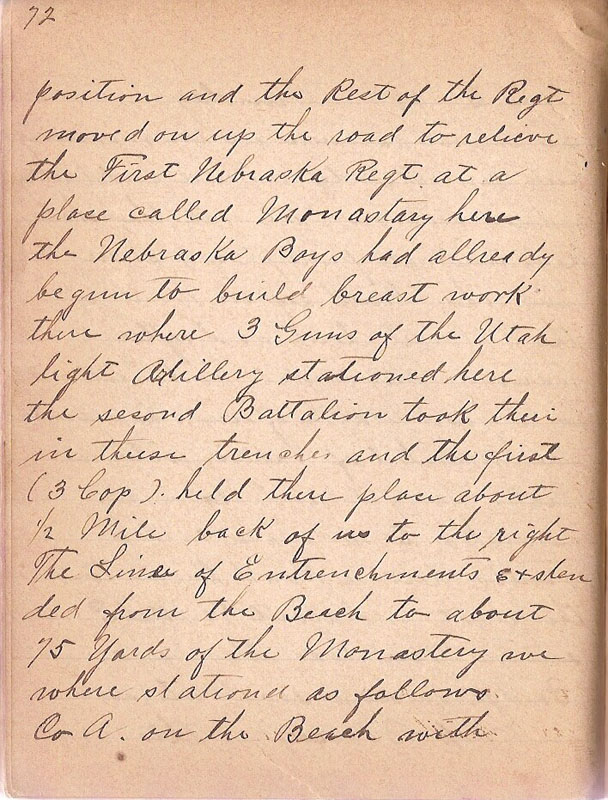 72
position and the Rest of the Regt
moved on up the road to relieve
the First Nebraska Regt. at a
plase called Monastary here
the Nebraska Boys had allready
begun to build breast work
there where 3 Guns of the Utah
light Atillery stationed here
the second Battalion took their
in theese trenches and the first
(3 Cop). held there place about
1/2 Mile back of us to the right
The Line of Entrenchments exsten
ded from the Beach to about
75 Yards of the Monastery we
where stationed as follows.
Co A. on the Beach with